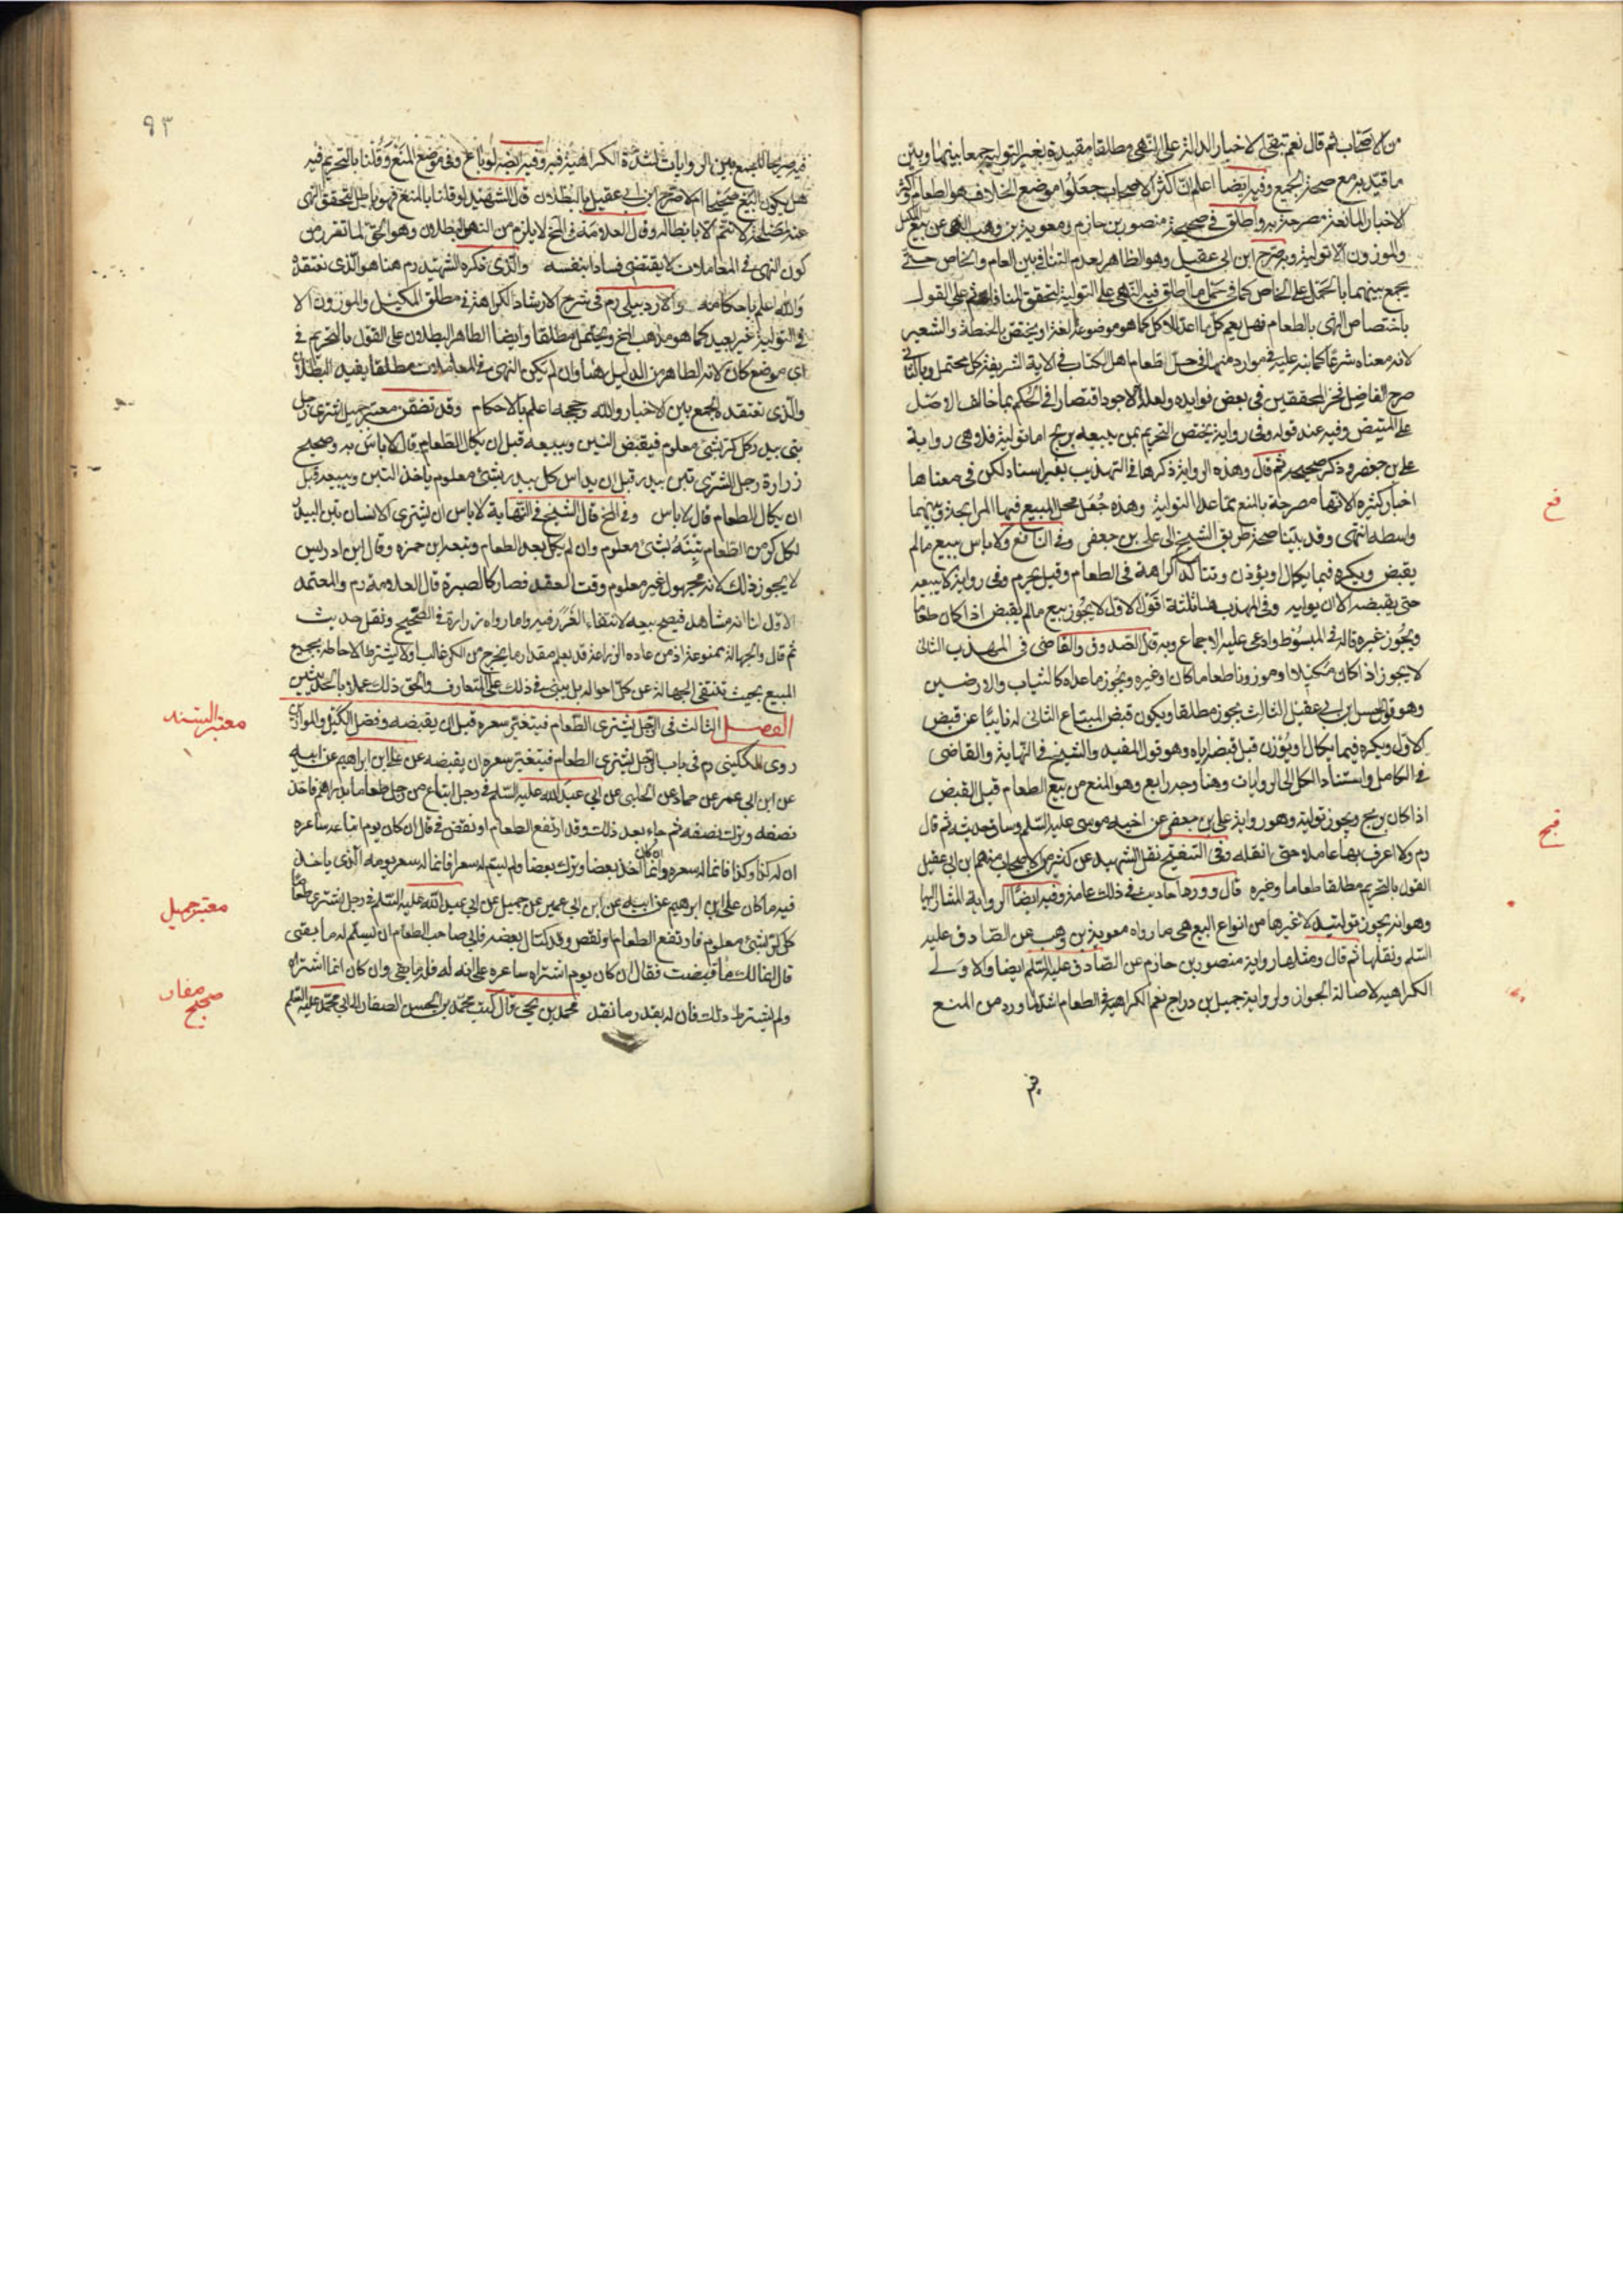 من الاصحاب ثم قال نعم تبقى الاخبار الدالة على النهى مطلقا مقيدة بغير التولية جمعا بينها وبين
ما قيد به مع صحة الجميع وفيه ايضا اعلم ان اكثر الاصحاب جعلوا موضع الخلاف هو الطعام واكثر
الاخبار المانعة مصرحة به واطلق فى صحيحة منصور بن حازم ومعوية بن وهب النهى عن بيع المكيل
والموزون الا تولية وبه صرح ابن ابى عقيل وهو الظاهر لعدم التنافى بين العام والخاص حتى
يجمع بينهما بالحمل على الخاص كما فى حمل ما اطلق فيه النهى على التولية لتحقق المنافاة ثم على القول
باختصاص النهى بالطعام فهل يعم كل ما اعد للاكل كما هو موضوعه لغة او يختص بالحنطة والشعير
لانه معناه شرعا كما نبه عليه فى موارد منها فى حل طعام اهل الكتاب فى الاية الشريفة كل محتمل وبالثانى
صرح الفاضل فخر المحققين فى بعض فوايده ولعله الاجود اقتصارا فى الحكم بما خالف الاصل
على المتيقن وفيه عند قوله وفى رواية يختص التحريم بمن يبيعه بربح اما تولية فلا وهى رواية
على بن جعفر وذكر صحيحه ثم قال وهذه الرواية ذكرها فى التهذيب بغير اسناد لكن فى معناها
اخبار كثيرة الا انها مصرحة بالمنع بما عدا التولية وهذه جعل محل المبيع فيها المرابحة وبينهما
واسطة انتهى وقد بينا صحة طريق الشيخ الى على بن جعفر وفى النافع ولا باس ببيع ما لم
يقبض ويكره فيما يكال او يوزن وتتاكد الكراهة فى الطعام وقيل يحرم وفى رواية لا يبيعه
حتى يقبضه الا ان يوليه وفى المهذب هنا ثلثة اقوال الاول لا يجوز بيع ما لم يقبض اذا كان طعاما
ويجوز غيره قاله فى المبسوط وادعى عليه الاجماع وبه قال الصدوق والقاضى فى المهذب الثانى
لا يجوز اذا كان مكيلا او موزونا طعاما كان او غيره ويجوز ما عداه كالثياب والارضين
وهو قول الحسن ابن ابى عقيل الثالث يجوز مطلقا ويكون قبض المبتاع الثانى له نايبا عن قبض
الاول ويكره فيما يكال او يوزن قبل قبضه اياه وهو قول المفيد والشيخ فى النهاية والقاضى
فى الكامل واستناد الكل الى الروايات وهنا وجه رابع وهو المنع من بيع الطعام قبل القبض
اذا كان بربح ويجوز تولية وهو رواية على بن جعفر عن اخيه موسى عليه السلم وساق حديثه ثم قال
رم ولا اعرف بها عاملا حتى انقله وفى التنقيح نقل الشهيد عن كثير من الاصحاب منهم بن ابى عقيل
القول بالتحريم مطلقا طعاما وغيره قال وورد احاديث فى ذلك عامة وفيه ايضا الرواية المشار اليها
وهو انه يجوز توليته لا غيرها من انواع البيع هى ما رواه معوية بن وهب عن الصادق عليه
السلم ونقلها ثم قال ومثلها رواية منصور بن حازم عن الصادق عليه السلم ايضا والاولى
الكراهية لاصالة الجواز ولرواية جميل بن دراج نعم الكراهية فى الطعام اشد لما ورد من المنع
فيه
فخ
فيج
٩٣
فيه صريحا للجمع بين الروايات لشدة الكراهية فيه وفيه ايضا لو باع فى موضع المنع وقلنا بالتحريم فيه
هل يكون البيع صحيحا ام لا صرح ابن ابى عقيل بالبطلان قال الشهيد لو قلنا بالمنع فهو باطل لتحقق النهى
عنه لمصلحة لا تتم الا بابطاله وقال العلامة فى المخ لا يلزم من النهى البطلان وهو الحق لما تقرر من
كون النهى فى المعاملات لا يقتضى فسادا بنفسه والذى ذكره الشهيد رم هنا هو الذى نعتقده
والله اعلم باحكامه والاردبيلى رم فى شرح الارشاد الكراهة فى مطلق المكيل والموزون الا
فى التولية غير بعيد كما هو مذهب المخ ويحتمل مطلقا وايضا الظاهر البطلان على القول بالتحريم فى
اى موضع كان لانه الظاهر من الدليل هنا وان لم يكن النهى فى المعاملات مطلقا يفيد البطلان
والذى نعتقده الجمع بين الاخبار والله وحججه اعلم بالاحكام وقد تضمن معتبر جميل اشترى رجل
تبن بيدر كل كر بشئ معلوم فيقبض التبن ويبيعه قبل ان يكال الطعام قال لا باس به وصحيح
زرارة رجل اشترى تبن بيدر قبل ان يداس كل بيدر بشئ معلوم ياخذ التبن ويبيعه قبل
ان يكال الطعام قال لا باس وفى المخ قال الشيخ فى النهاية لا باس ان يشترى الانسان تبن البيدر
لكل كر من الطعام تبنة بشئ معلوم وان لم يكل بعد الطعام وتبعه ابن حمزه وقال ابن ادريس
لا يجوز ذلك لانه مجهول غير معلوم وقت العقد فصار كالصبرة قال العلامة رم والمعتمد
الاول لنا انه مشاهد فيصح بيعه لانتفاء الغرر فيه ولما رواه زرارة فى الصحيح ونقل حديث
ثم قال والجهالة ممنوعة اذ من عاده الزراعة قد يعلم مقدار ما يخرج من الكر غالبا ولا يشترط الاحاطة بجميع
المبيع بحيث تنتفى الجهالة عن كل احواله بل يبنى فى ذلك على المتعارف والحق ذلك عملا بالحديثين
الفصل الثالث فى الرجل يشترى الطعام فيتغير سعره قبل ان يقبضه وفضل الكيل والموازين
روى الكلينى رم فى باب الرجل يشترى الطعام فيتغير سعره ان يقبضه عن على بن ابراهيم عن ابيه
عن ابن ابى عمير عن حماد عن الحلبى عن ابى عبد الله عليه السلم فى رجل ابتاع من رجل طعاما بدراهم فاخذ
نصفه وترك نصفه ثم جاء بعد ذلك وقد ارتفع الطعام او نقص قال ان كان يوم ابتاعه ساعره
ان له كذا وكذا فانما له سعره وان كان انما اخذ بعضا وترك بعضا ولم يسم له سعرا فانما له سعر يومه الذى ياخذ
فيه ما كان على بن ابرهيم عن ابيه عن ابن ابى عمير عن جميل عن ابى عبد الله عليه السلم فى رجل يشترى طعاما
كل كر بشئ معلوم فارتفع الطعام او نقص وقد اكتال بعضه فابى صاحب الطعام ان يسلم له ما بقى
قال انما لك ما قبضت فقال ان كان يوم اشتراه ساعره على انه له فله ما بقى وان كان انما اشتراه
ولم يشترط ذلك فان له بقدر ما نقد محمد بن يحيى قال كتب محمد بن الحسن الصفار الى ابى محمد عليه السلم
معتبر السند
معتبر جميل
صحيح صفار